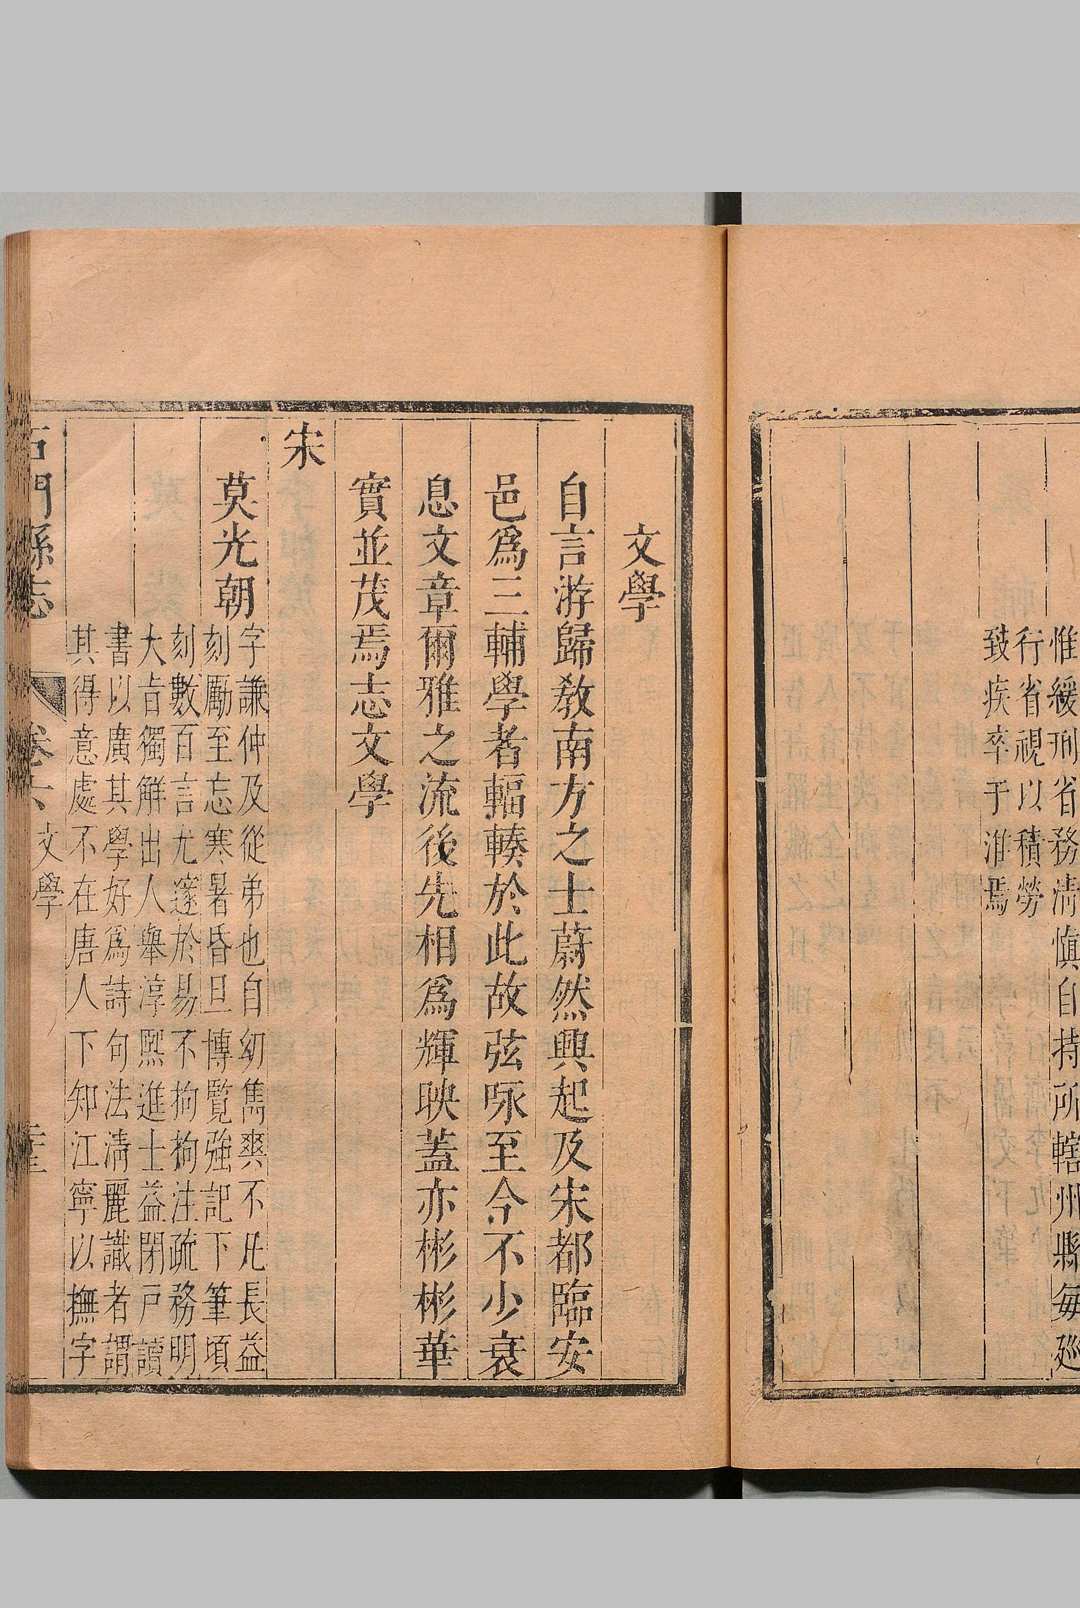 惟緩刑省務清慎自持所轄州縣每廵
行省視以積勞
致疾卒于淮焉
文學
自言游歸教南方之士蔚然興起及宋都臨安
邑爲三輔學者輻輳於此故弦咏至今不少衰
息文章爾雅之流後先相爲輝映蓋亦彬彬華
實並茂焉志文學
宋
莫光朝
字謙仲及從弟也自幼雋爽不凡長益
刻勵至忘寒暑昏旦博覽強記下筆頃
刻數百言尤邃於易不拘拘注疏務明
大旨獨解出人舉淳熈進士益閉戸讀
書以廣其學好爲詩句法淸麗識者謂
其得意處不在唐人下知江寧以撫字
石門縣志
卷六
文學